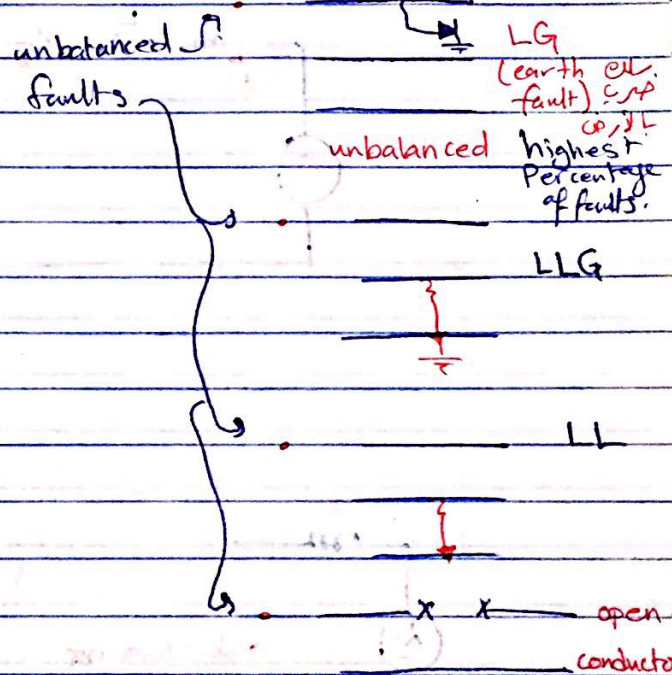 unbalanced
faults
LG
(earth
fault)
unbalanced highest
Percentage
of faults.
LLG
LL
x x open
conducto